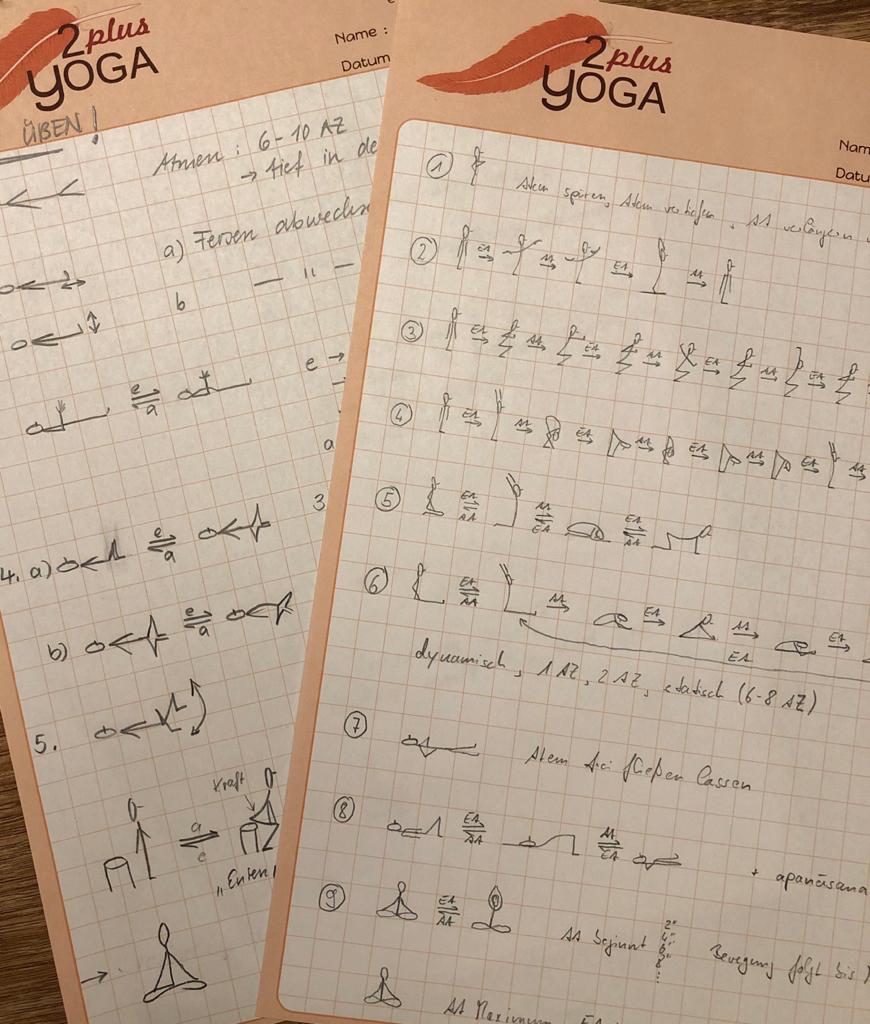 2plus
YOGA
Name :
Datum
ÜBEN!
Atmen : 6-10 AZ
→ tief in de
a) Fersen abwechs
b — " —
e
a
e →
a
3
4. a)
e
a
b)
e
a
5.
Kraft
a
e
"Enten
→
2plus
YOGA
Nam
Datu
① Atem spüren, Atem vertiefen, AA verlängern
② EA → AA → EA → AA →
③ EA → AA → EA → AA → EA → AA → EA →
④ EA → AA → EA → AA → EA → AA → EA → AA →
⑤ EA AA AA EA EA AA
⑥ EA AA AA → EA → AA → EA →
EA
dynamisch, 1 AZ, 2 AZ, statisch (6-8 AZ)
⑦ Atem frei fließen lassen
⑧ EA AA AA EA + apanāsana
⑨ EA AA AA beginnt 2" 4" 6" 8" Bewegung folgt bis
AA Maximum EA